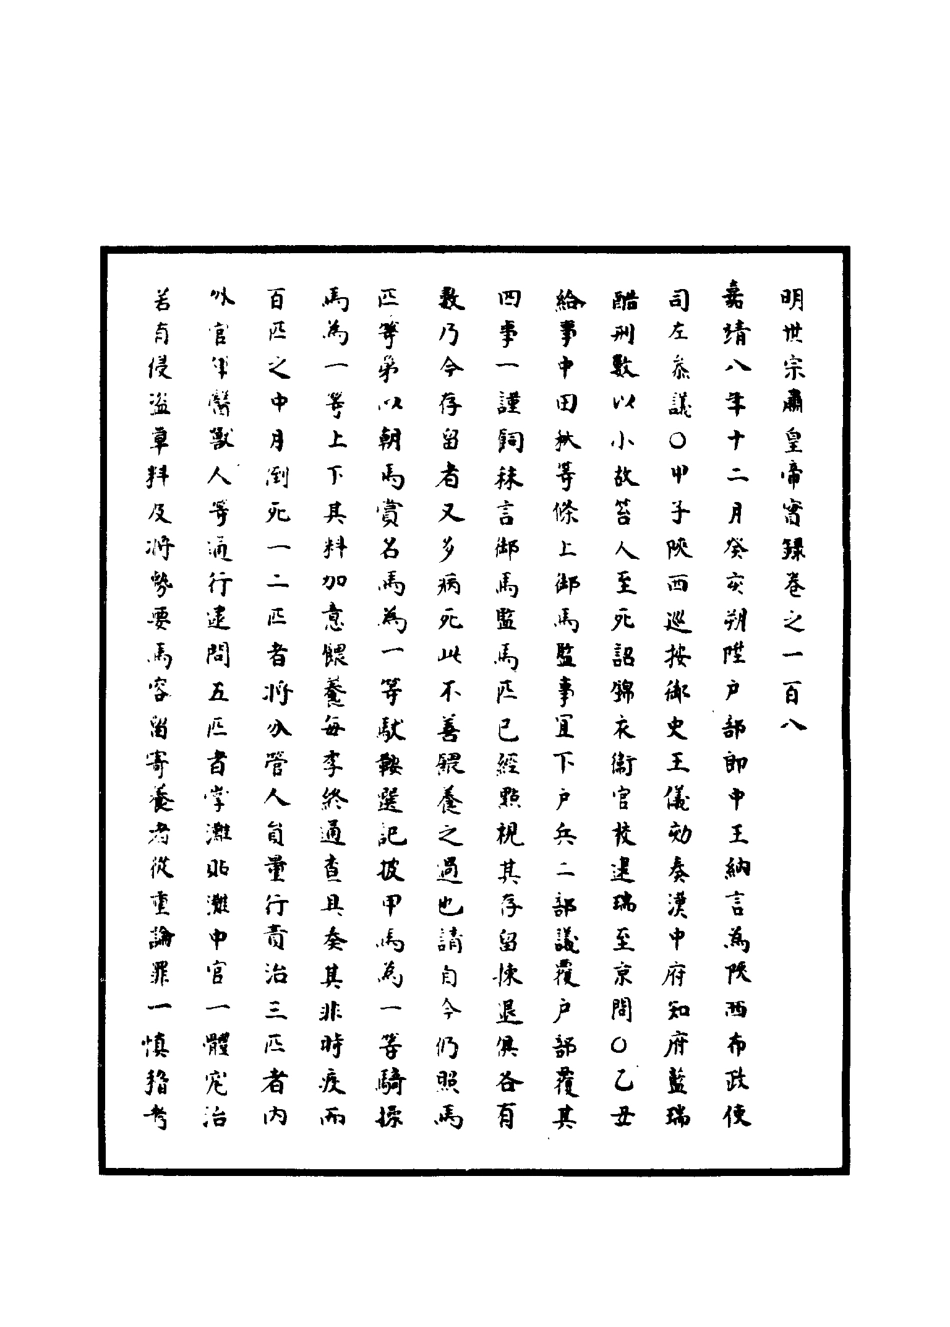 明世宗肅皇帝實錄卷之一百八
嘉靖八年十二月癸亥朔陞戶部郎中王納言為陝西布政使
司左叅議〇甲子陝西巡按御史王儀劾奏漢中府知府藍瑞
酷刑數以小故笞人至死詔錦衣衛官校逮瑞至京問〇乙丑
給事中田秋等條上御馬監事宜下戶兵二部議覆戶部覆其
四事一謹飼秣言御馬監馬匹已經點視其存留揀退俱各有
數乃今存留者又多病死此不善餵養之過也請自今仍照馬
匹等第以朝馬賞名馬為一等馱鞍選記披甲馬為一等騎操
馬為一等上下其料加意餵養每季終通查具奏其非時疫而
百匹之中月倒死一二匹者將分管人員量行責治三匹者內
外官軍醫獸人等通行逮問五匹者掌灘貼灘中官一體究治
若有侵盜草料及將勢要馬容留寄養者從重論罪一慎稽考